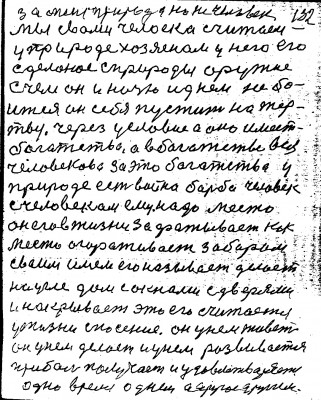 за меня природа на не человек 132
мы своим человека считаем
у природе хозяенам у него его
зделоное с природы оружие
с чем он и ночю и днем не бо-
ится он себя пустит на жер-
тву, через условие а оно имеет-
богатства, а в богатстве вся
человекова за это богатства у
природе есть война барба человек
с человекам ему надо место
он его в жизни задратывает как
место огораживает забором
своим имем его называет делает
на угле дом с окнами с дверями
и накрывает это его считается
у жизни спасение. он у нем живет
он у нем делает и у нем развивается
прибол получает и удовлетваряется
одно время одним а другое другим.